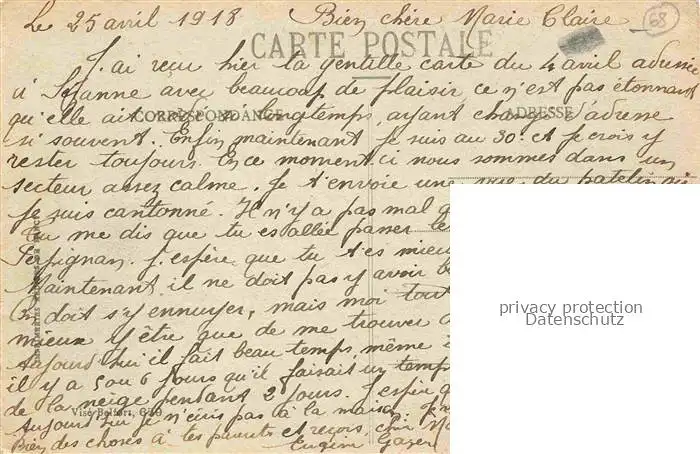 Le 25 avril 1918 Bien chère Marie Claire 68
CARTE POSTALE
J'ai reçu hier ta gentille carte du 4 avril
à avec beaucoup de plaisir ce n'est pas étonnant
qu'elle ait si longtemps, ayant changé d'adresse
CORRESPONDANCE ADRESSE
si souvent. Enfin maintenant je suis au 30e et je crois y
rester toujours. En ce moment ci nous sommes dans un
secteur assez calme. Je t'envoie une vue du patelin où
je suis cantonné. Il n'y a pas mal
Tu me dis que tu es allée passer
Perpignan. J'espère que tu t'es
Maintenant il ne doit pas y avoir
On doit s'y ennuyer, mais moi tout
mieux y être que de me trouver
Aujourd'hui il fait beau temps, même
il y a 5 ou 6 jours qu'il faisait un temps
de la neige pendant 2 jours. J'espère
Visé Belfort, 679
Aujourd'hui je n'écris pas à la maison
Bien des choses à tes parents et reçois
Eugène
privacy protection
Datenschutz